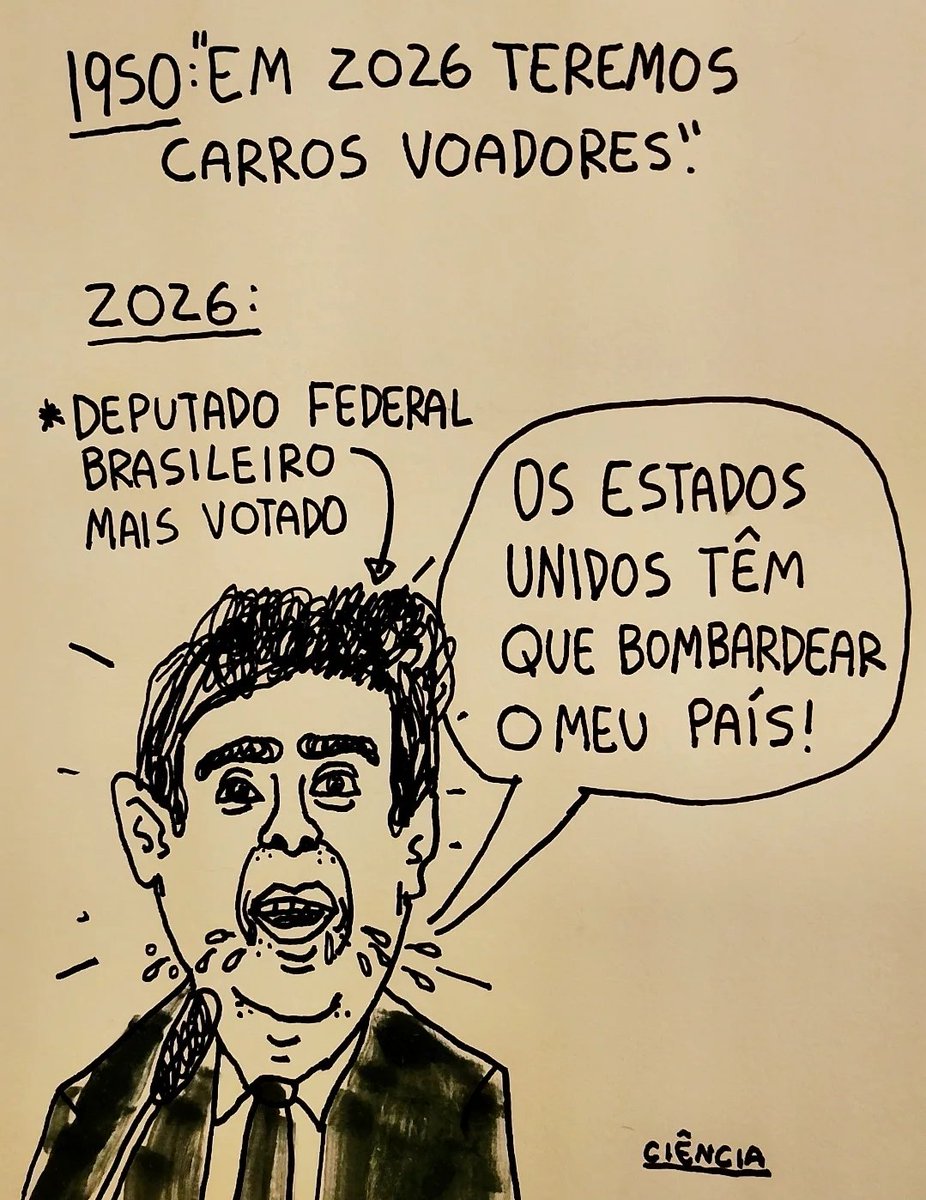 1950: "EM 2026 TEREMOS
CARROS VOADORES".
2026:
*DEPUTADO FEDERAL
BRASILEIRO
MAIS VOTADO
OS ESTADOS
UNIDOS TÊM
QUE BOMBARDEAR
O MEU PAÍS!
CIÊNCIA